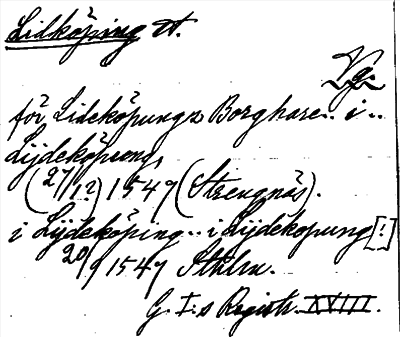 Lidköping st.
Vg.
för Lideköpungz Borghare.. i..
Lijdeköpung,
(27/12) 1547 (Strengnäs).
i Lijdeköping.. i Lijdekopung [!]
20/9 1547 Sthlm.
G. I:s Registr. XVIII.